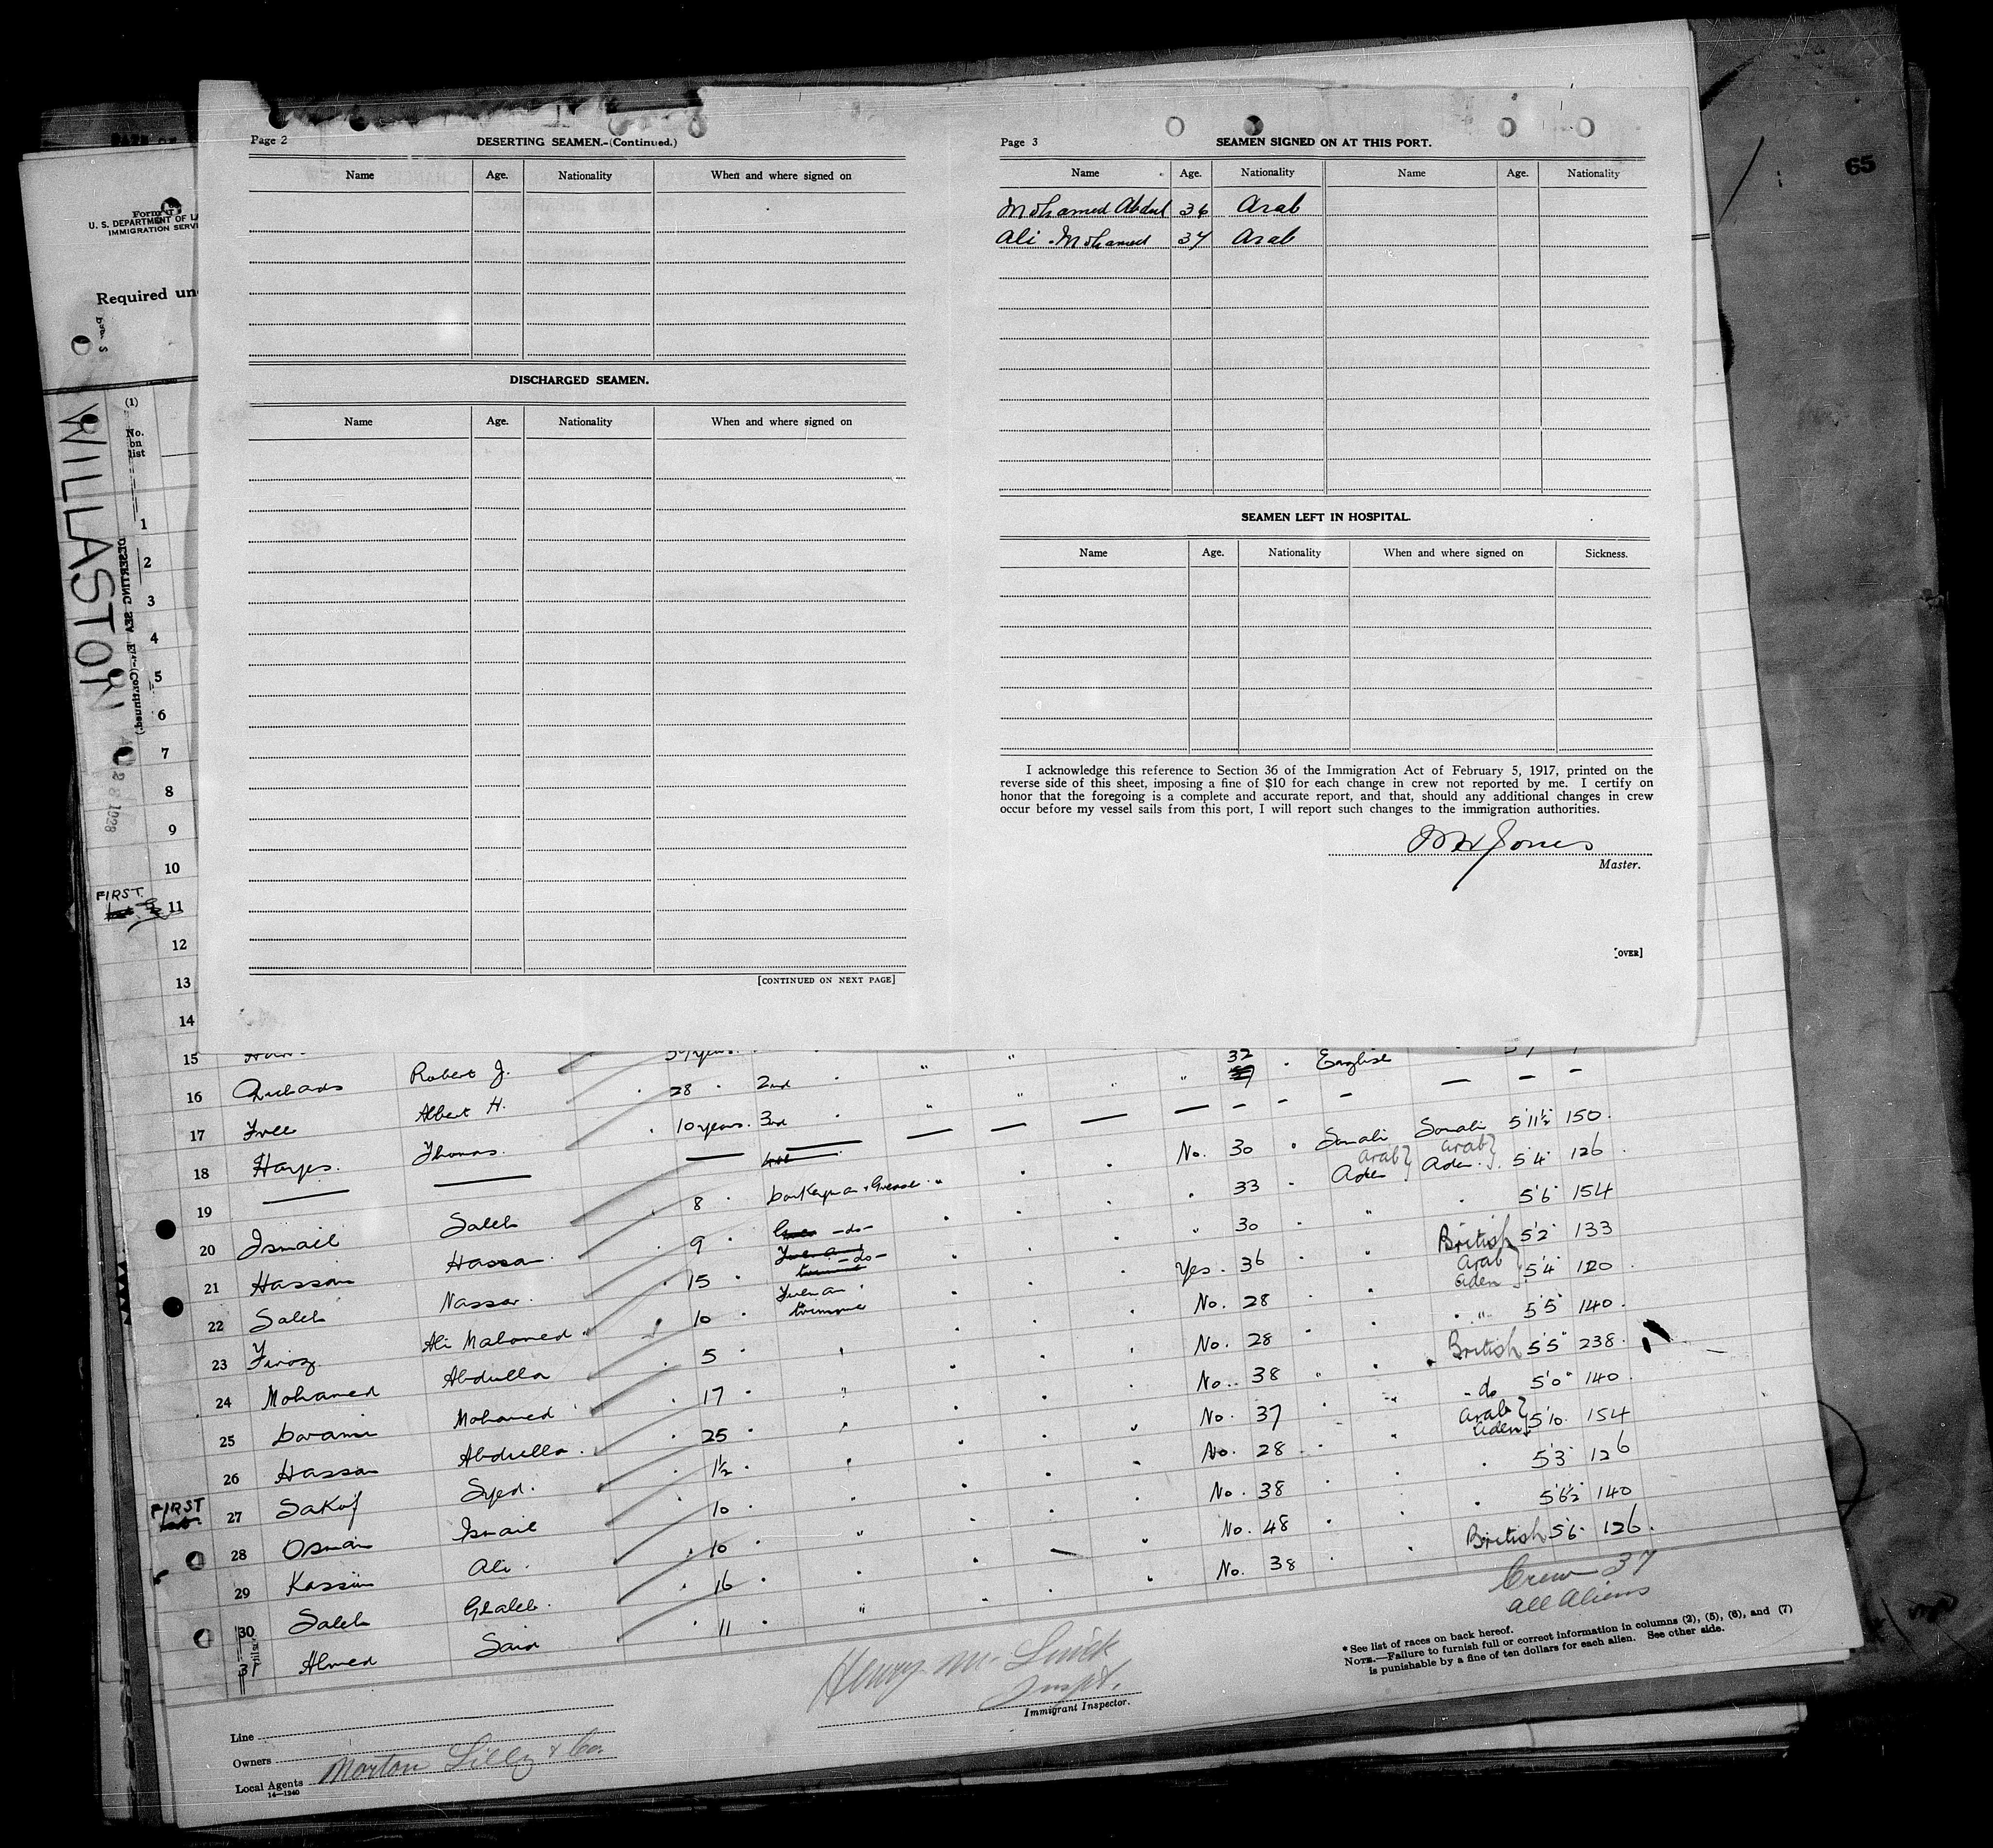 65
Page 2
DESERTING SEAMEN.-(Continued.)
Name Age. Nationality When and where signed on
DISCHARGED SEAMEN.
Name Age. Nationality When and where signed on
[CONTINUED ON NEXT PAGE]
Page 3
SEAMEN SIGNED ON AT THIS PORT.
Name Age. Nationality Name Age. Nationality
Mohamed Abdul 36 Arab
Ali Mohamed 37 Arab
SEAMEN LEFT IN HOSPITAL.
Name Age. Nationality When and where signed on Sickness.
I acknowledge this reference to Section 36 of the Immigration Act of February 5, 1917, printed on the
reverse side of this sheet, imposing a fine of $10 for each change in crew not reported by me. I certify on
honor that the foregoing is a complete and accurate report, and that, should any additional changes in crew
occur before my vessel sails from this port, I will report such changes to the immigration authorities.
Jones
Master.
[OVER]
Form
U. S. DEPARTMENT OF
IMMIGRATION
Required
WILLASTON
1928
(1)
No.
on
list
1
2
3
4
5
6
7
8
9
10
FIRST
11
12
13
14
15
16 Richards Robert J. 28 2nd 32 English
17 Albert H. 10 years. 3rd
18 Hayes. Thomas.
19
8 Donkeyman + Greaser No. 30 Somali Somali 5'11½" 150
20 Ismail Saleh 9 -do- 33 Arab Aden Arab Aden 5'4" 126
21 Hassan Hassan 15 -do- 30 5'6" 154
22 Saleh Nassar. 10 Fireman trimmer Yes. 36 British 5'2" 133
23 Firoz Ali Mahomed 5 No. 28 Arab Aden 5'4" 120
24 Mohamed Abdulla 17 No. 28 5'5" 140
25 Mohamed 25 No. 38 British 5'5" 238
26 Hassan Abdulla 1½ No. 37 -do 5'0" 140
FIRST
27 Sakaf Syed. 10 No. 28 Arab Aden 5'10 154
28 Osman Ismail 10 No. 38 5'3" 126
29 Kassim Ali 16 No. 48 5'6½" 140
30 Saleh Ghaleb. 11 No. 38 British 5'6" 126
31 Ahmed Said
Crew 37
all Aliens
*See list of races on back hereof.
NOTE.—Failure to furnish full or correct information in columns (2), (5), (6), and (7)
is punishable by a fine of ten dollars for each alien. See other side.
Henry
Inspt.
Immigrant Inspector.
Line
Owners
Local Agents Norton Lilly & Co.
14—1240